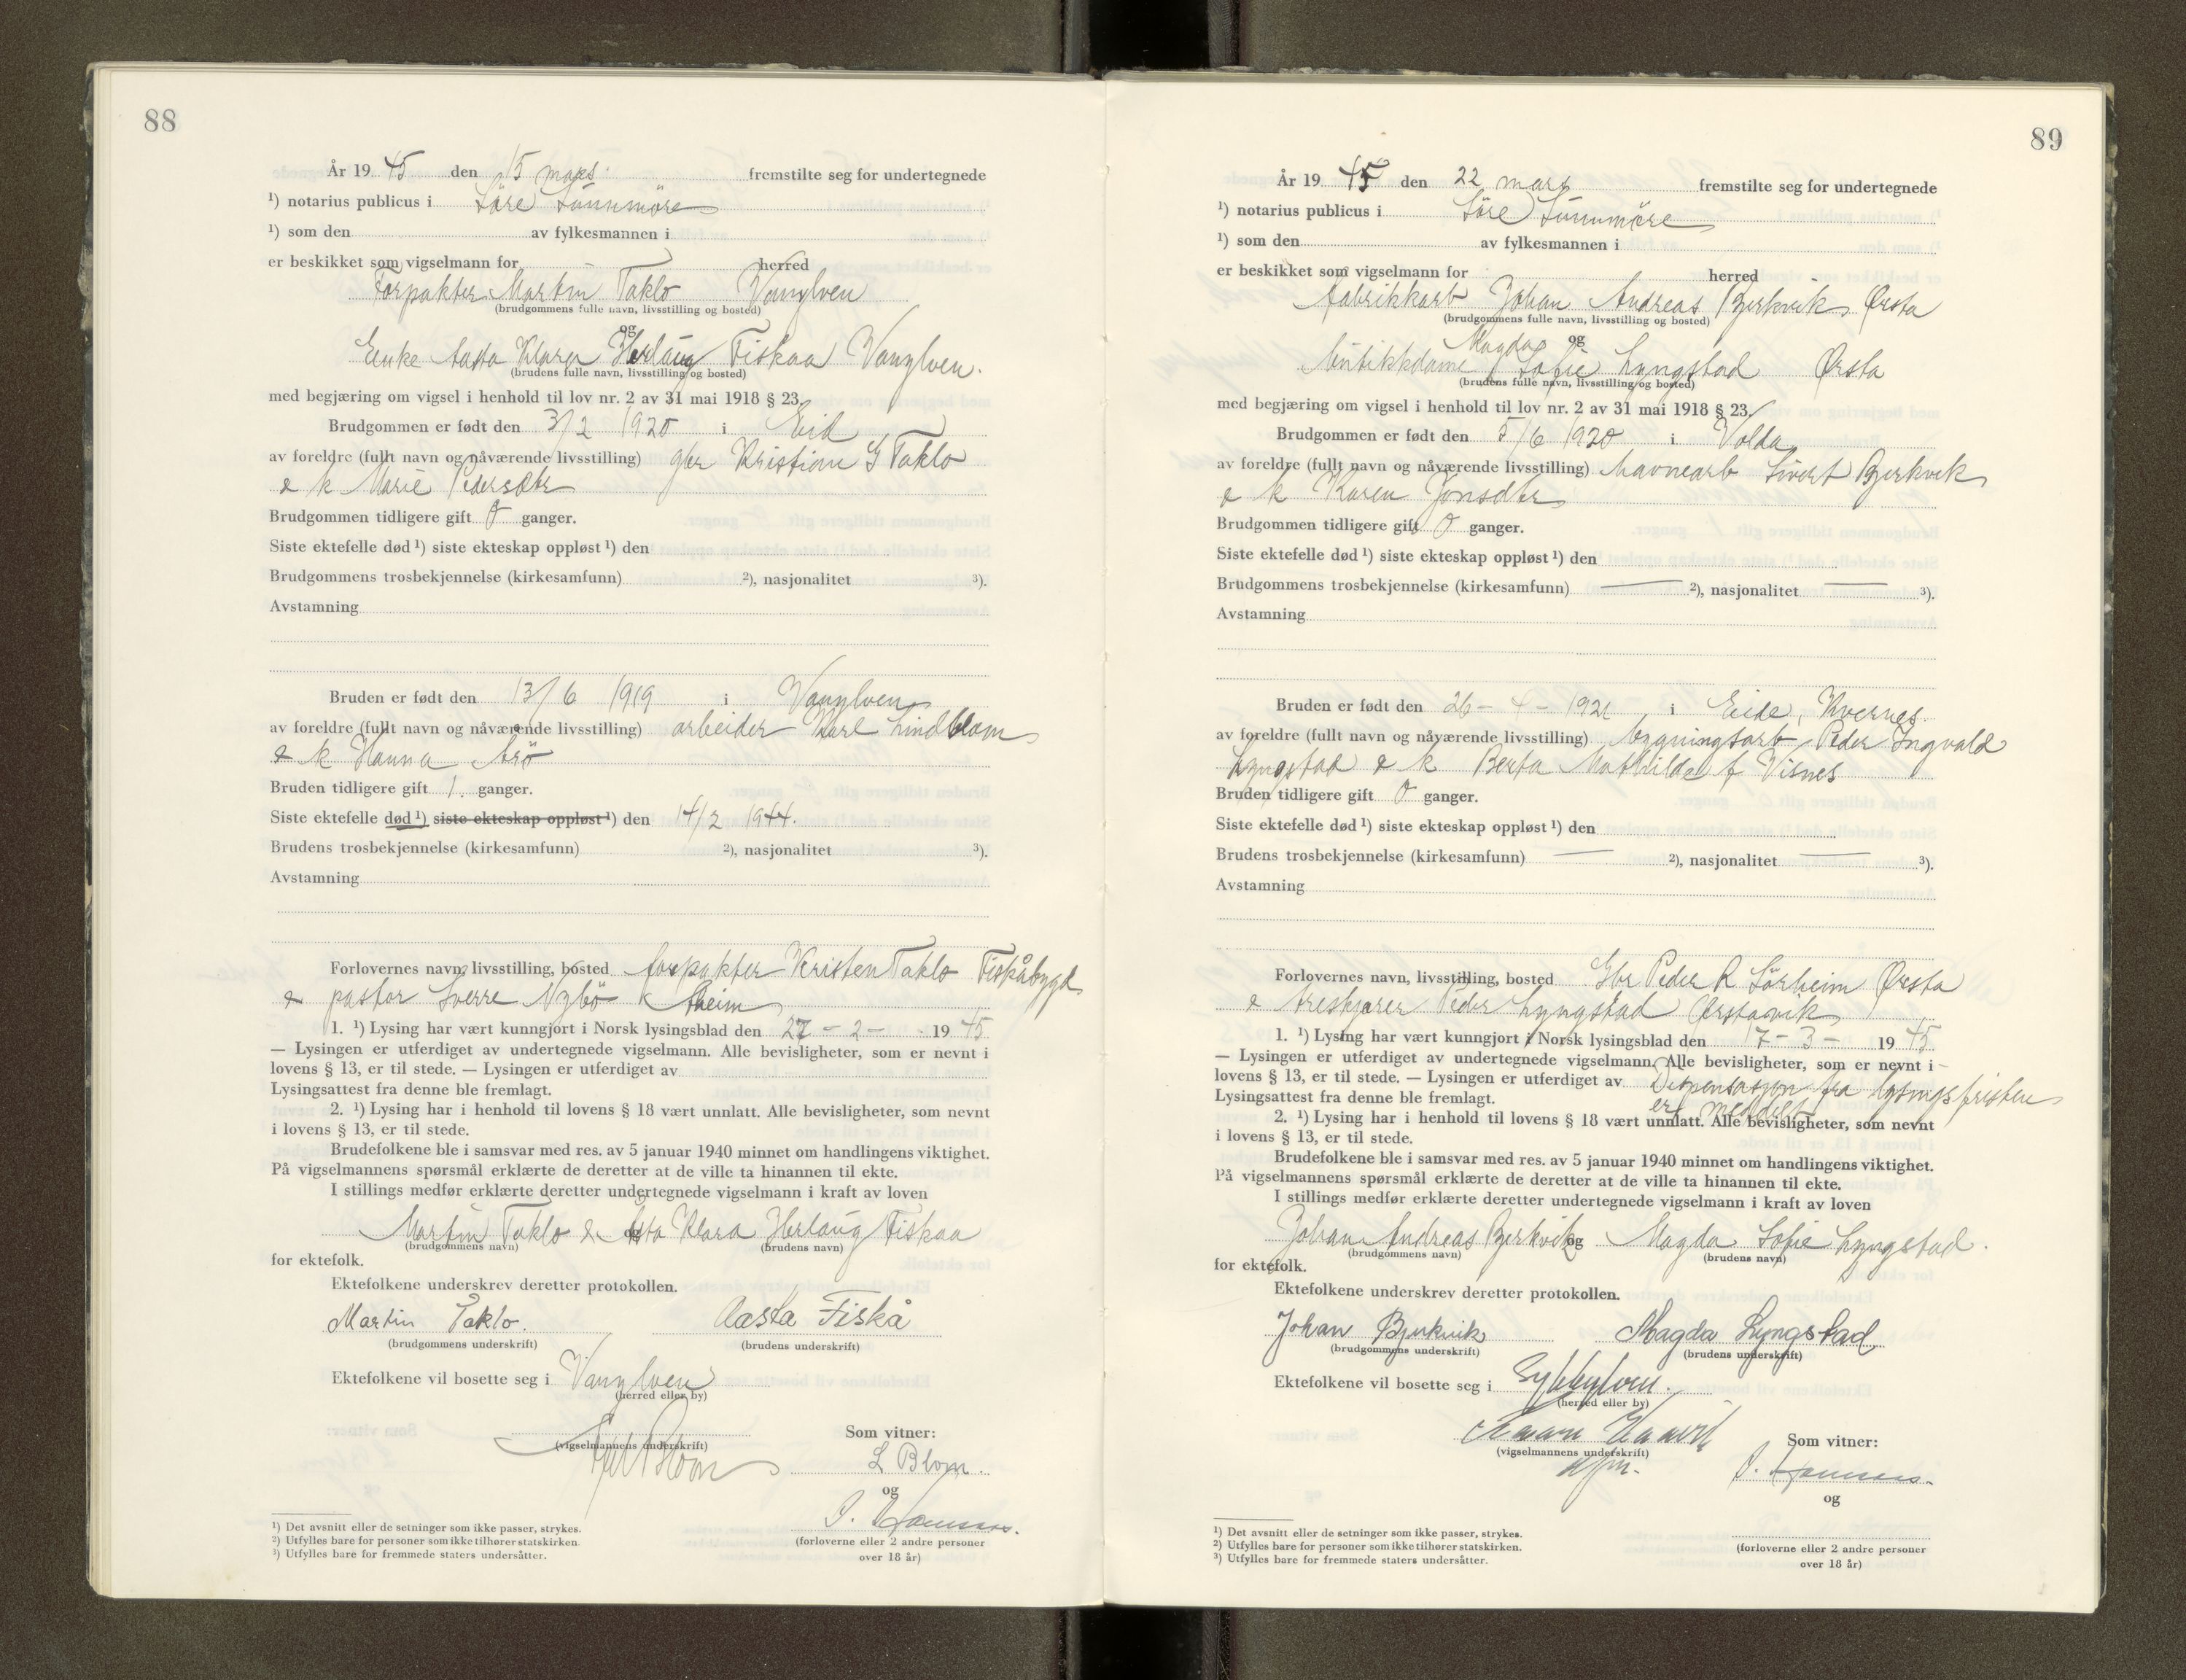 88
År 19 45 den 15 mars fremstilte seg for undertegnede
¹) notarius publicus i Søre Sunnmøre
¹) som den av fylkesmannen i
er beskikket som vigselmann for herred
Forpakter Martin Taklo Vanylven
(brudgommens fulle navn, livsstilling og bosted)
og
Enke Aasta Klara Herlaug Fiskaa Vanylven.
(brudens fulle navn, livsstilling og bosted)
med begjæring om vigsel i henhold til lov nr. 2 av 31 mai 1918 § 23.
Brudgommen er født den 3/2 1920 i Eid
av foreldre (fullt navn og nåværende livsstilling) gbr Kristian G Taklo
& k Marie Pedersdtr
Brudgommen tidligere gift 0 ganger.
Siste ektefelle død ¹) siste ekteskap oppløst ¹) den
Brudgommens trosbekjennelse (kirkesamfunn) ²), nasjonalitet ³).
Avstamning
Bruden er født den 13/6 1919 i Vanylven
av foreldre (fullt navn og nåværende livsstilling) arbeider Karl Lindblom
& k Hanna
Bruden tidligere gift 1. ganger.
Siste ektefelle død ¹) siste ekteskap oppløst ¹) den 14/2 1944.
Brudens trosbekjennelse (kirkesamfunn) ²), nasjonalitet ³).
Avstamning
Forlovernes navn, livsstilling, bosted forpakter Kristen Taklo Fiskåbygd
& pastor Sverre Nybö
1. ¹) Lysing har vært kunngjort i Norsk lysingsblad den 27 - 2 - 19 45
— Lysingen er utferdiget av undertegnede vigselmann. Alle bevisligheter, som er nevnt i
lovens § 13, er til stede. — Lysingen er utferdiget av
Lysingsattest fra denne ble fremlagt.
2. ¹) Lysing har i henhold til lovens § 18 vært unnlatt. Alle bevisligheter, som nevnt
i lovens § 13, er til stede.
Brudefolkene ble i samsvar med res. av 5 januar 1940 minnet om handlingens viktighet.
På vigselmannens spørsmål erklærte de deretter at de ville ta hinannen til ekte.
I stillings medfør erklærte deretter undertegnede vigselmann i kraft av loven
Martin Taklo & Asta Klara Herlaug Fiskaa
(brudgommens navn) (brudens navn)
for ektefolk.
Ektefolkene underskrev deretter protokollen.
Martin Taklo. Aasta Fiskå
(brudgommens underskrift) (brudens underskrift)
Ektefolkene vil bosette seg i Vanylven
(herred eller by)
(vigselmannens underskrift) Som vitner:
L Blom.
og
(forloverne eller 2 andre personer
over 18 år)
¹) Det avsnitt eller de setninger som ikke passer, strykes.
²) Utfylles bare for personer som ikke tilhører statskirken.
³) Utfylles bare for fremmede staters undersåtter.
89
År 19 45 den 22 mars fremstilte seg for undertegnede
¹) notarius publicus i Søre Sunnmøre
¹) som den av fylkesmannen i
er beskikket som vigselmann for herred
fabrikkarb Johan Andreas Bjerkvik Ørsta
(brudgommens fulle navn, livsstilling og bosted)
Magda og
butikkdame Sofie Lyngstad Ørsta
(brudens fulle navn, livsstilling og bosted)
med begjæring om vigsel i henhold til lov nr. 2 av 31 mai 1918 § 23.
Brudgommen er født den 5/6 1920 i Volda
av foreldre (fullt navn og nåværende livsstilling) havnearb Sivert Bjerkvik
& k Karen Jonsdtr
Brudgommen tidligere gift 0 ganger.
Siste ektefelle død ¹) siste ekteskap oppløst ¹) den
Brudgommens trosbekjennelse (kirkesamfunn) — ²), nasjonalitet — ³).
Avstamning
Bruden er født den 26 - 4 - 1921 i Eide, Kvernes.
av foreldre (fullt navn og nåværende livsstilling) bygningsarb Peder Ingvald
Lyngstad & k Berta Mathilde f Visnes
Bruden tidligere gift 0 ganger.
Siste ektefelle død ¹) siste ekteskap oppløst ¹) den
Brudens trosbekjennelse (kirkesamfunn) — ²), nasjonalitet — ³).
Avstamning
Forlovernes navn, livsstilling, bosted Gbr Peder R Sørheim Ørsta
& treskjærer Peder Lyngstad Ørstavik
1. ¹) Lysing har vært kunngjort i Norsk lysingsblad den 17 - 3 - 19 45
— Lysingen er utferdiget av undertegnede vigselmann. Alle bevisligheter, som er nevnt i
lovens § 13, er til stede. — Lysingen er utferdiget av Dispensasjon fra lysingsfristen
Lysingsattest fra denne ble fremlagt. er meddelt
2. ¹) Lysing har i henhold til lovens § 18 vært unnlatt. Alle bevisligheter, som nevnt
i lovens § 13, er til stede.
Brudefolkene ble i samsvar med res. av 5 januar 1940 minnet om handlingens viktighet.
På vigselmannens spørsmål erklærte de deretter at de ville ta hinannen til ekte.
I stillings medfør erklærte deretter undertegnede vigselmann i kraft av loven
Johan Andreas Bjerkvik og Magda Sofie Lyngstad.
(brudgommens navn) (brudens navn)
for ektefolk.
Ektefolkene underskrev deretter protokollen.
Johan Bjerkvik Magda Lyngstad
(brudgommens underskrift) (brudens underskrift)
Ektefolkene vil bosette seg i Sykkylven.
(herred eller by)
(vigselmannens underskrift) Som vitner:
og
(forloverne eller 2 andre personer
over 18 år)
¹) Det avsnitt eller de setninger som ikke passer, strykes.
²) Utfylles bare for personer som ikke tilhører statskirken.
³) Utfylles bare for fremmede staters undersåtter.